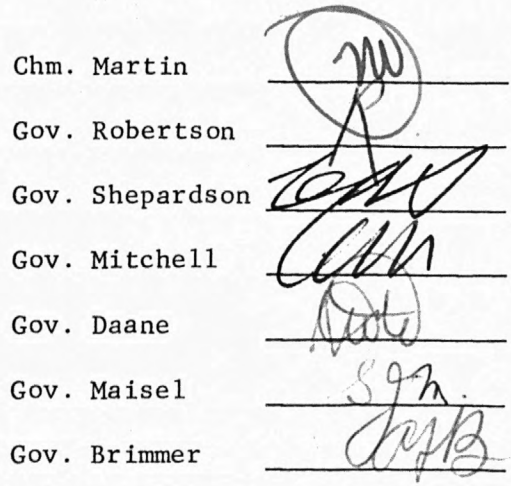 Chm. Martin
Gov. Robertson
Gov. Shepardson
Gov. Mitchell
Gov. Daane
Gov. Maisel SJM.
Gov. Brimmer